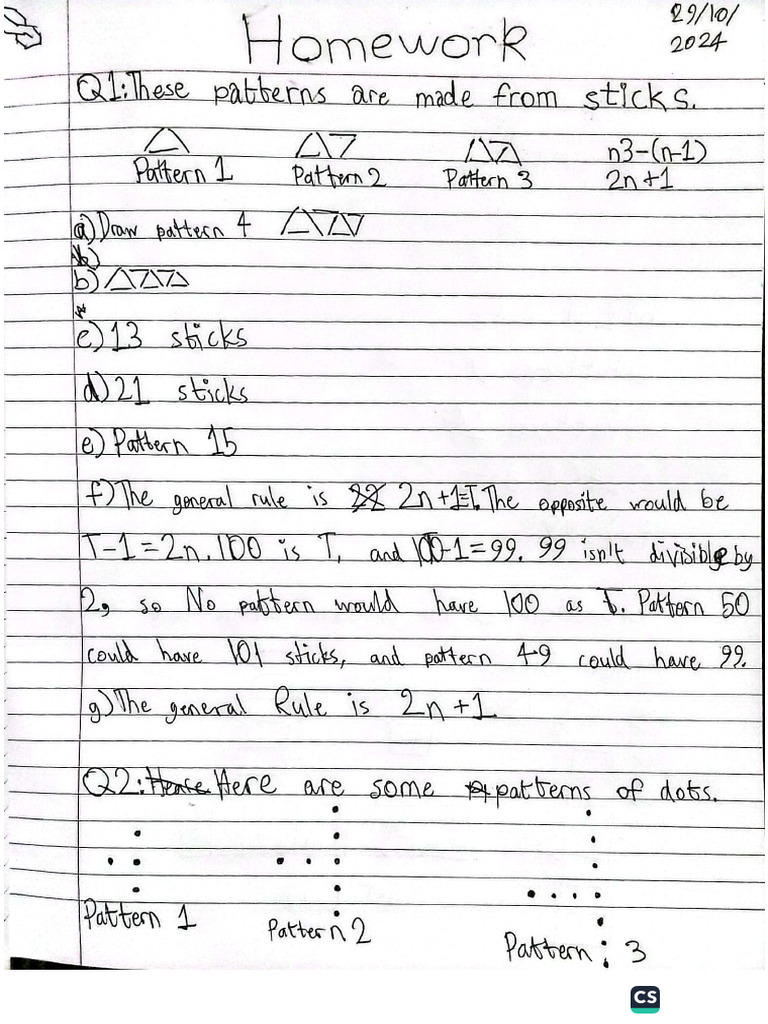 29/10/
2024
Homework
Q1: These patterns are made from sticks.
n3-(n-1)
Pattern 1 Pattern 2 Pattern 3 2n+1
a) Draw pattern 4
b)
b)
c) 13 sticks
d) 21 sticks
e) Pattern 15
f) The general rule is 2n+1=T. The opposite would be
T-1=2n. 100 is T, and 100-1=99. 99 isn't divisible by
2, so No pattern would have 100 as T. Pattern 50
could have 101 sticks, and pattern 49 could have 99.
g) The general Rule is 2n+1
Q2: Here are some patterns of dots.
Pattern 1 Pattern 2 Pattern 3
CS